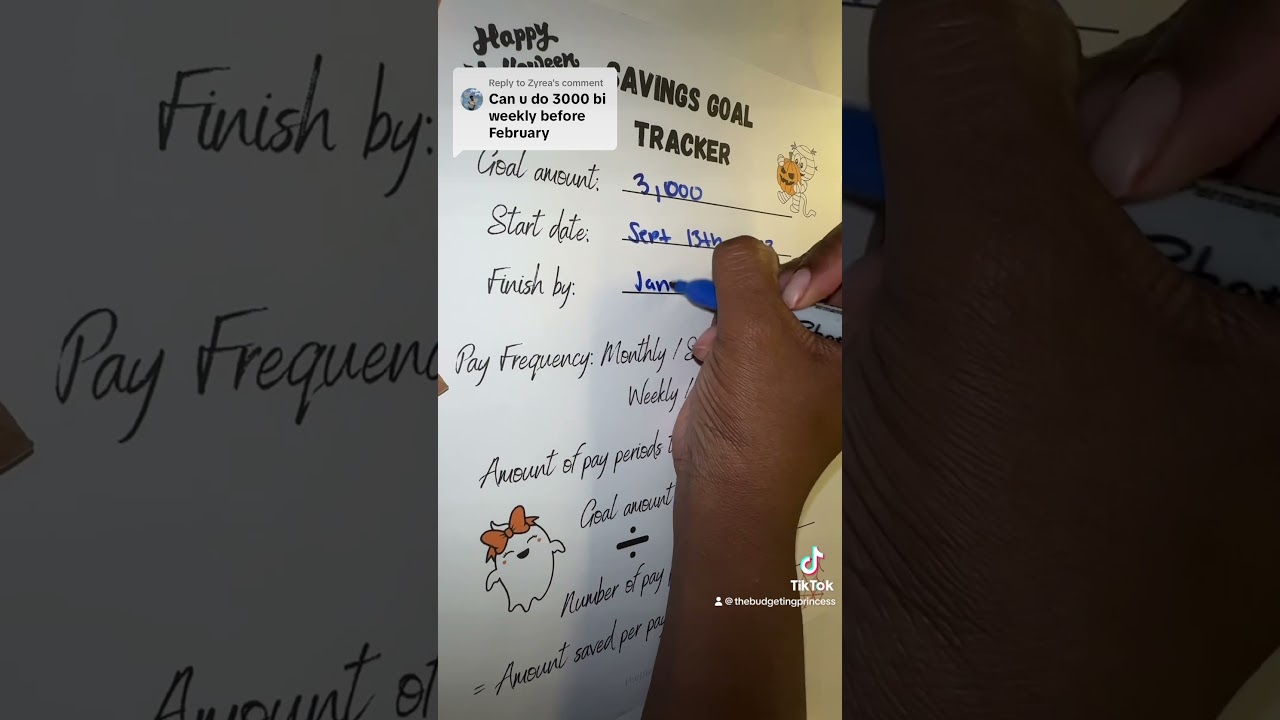 Happy
Halloween
SAVINGS GOAL
TRACKER
Reply to Zyrea's comment
Can u do 3000 bi
weekly before
February
Goal amount: 3,000
Start date: Sept 13th
Finish by: Jan
Pay Frequency: Monthly /
Weekly /
Amount of pay periods
Goal amount
÷
Number of pay
= Amount saved per pay
TikTok
@thebudgetingprincess
Finish by:
Pay Frequenc
Amount of